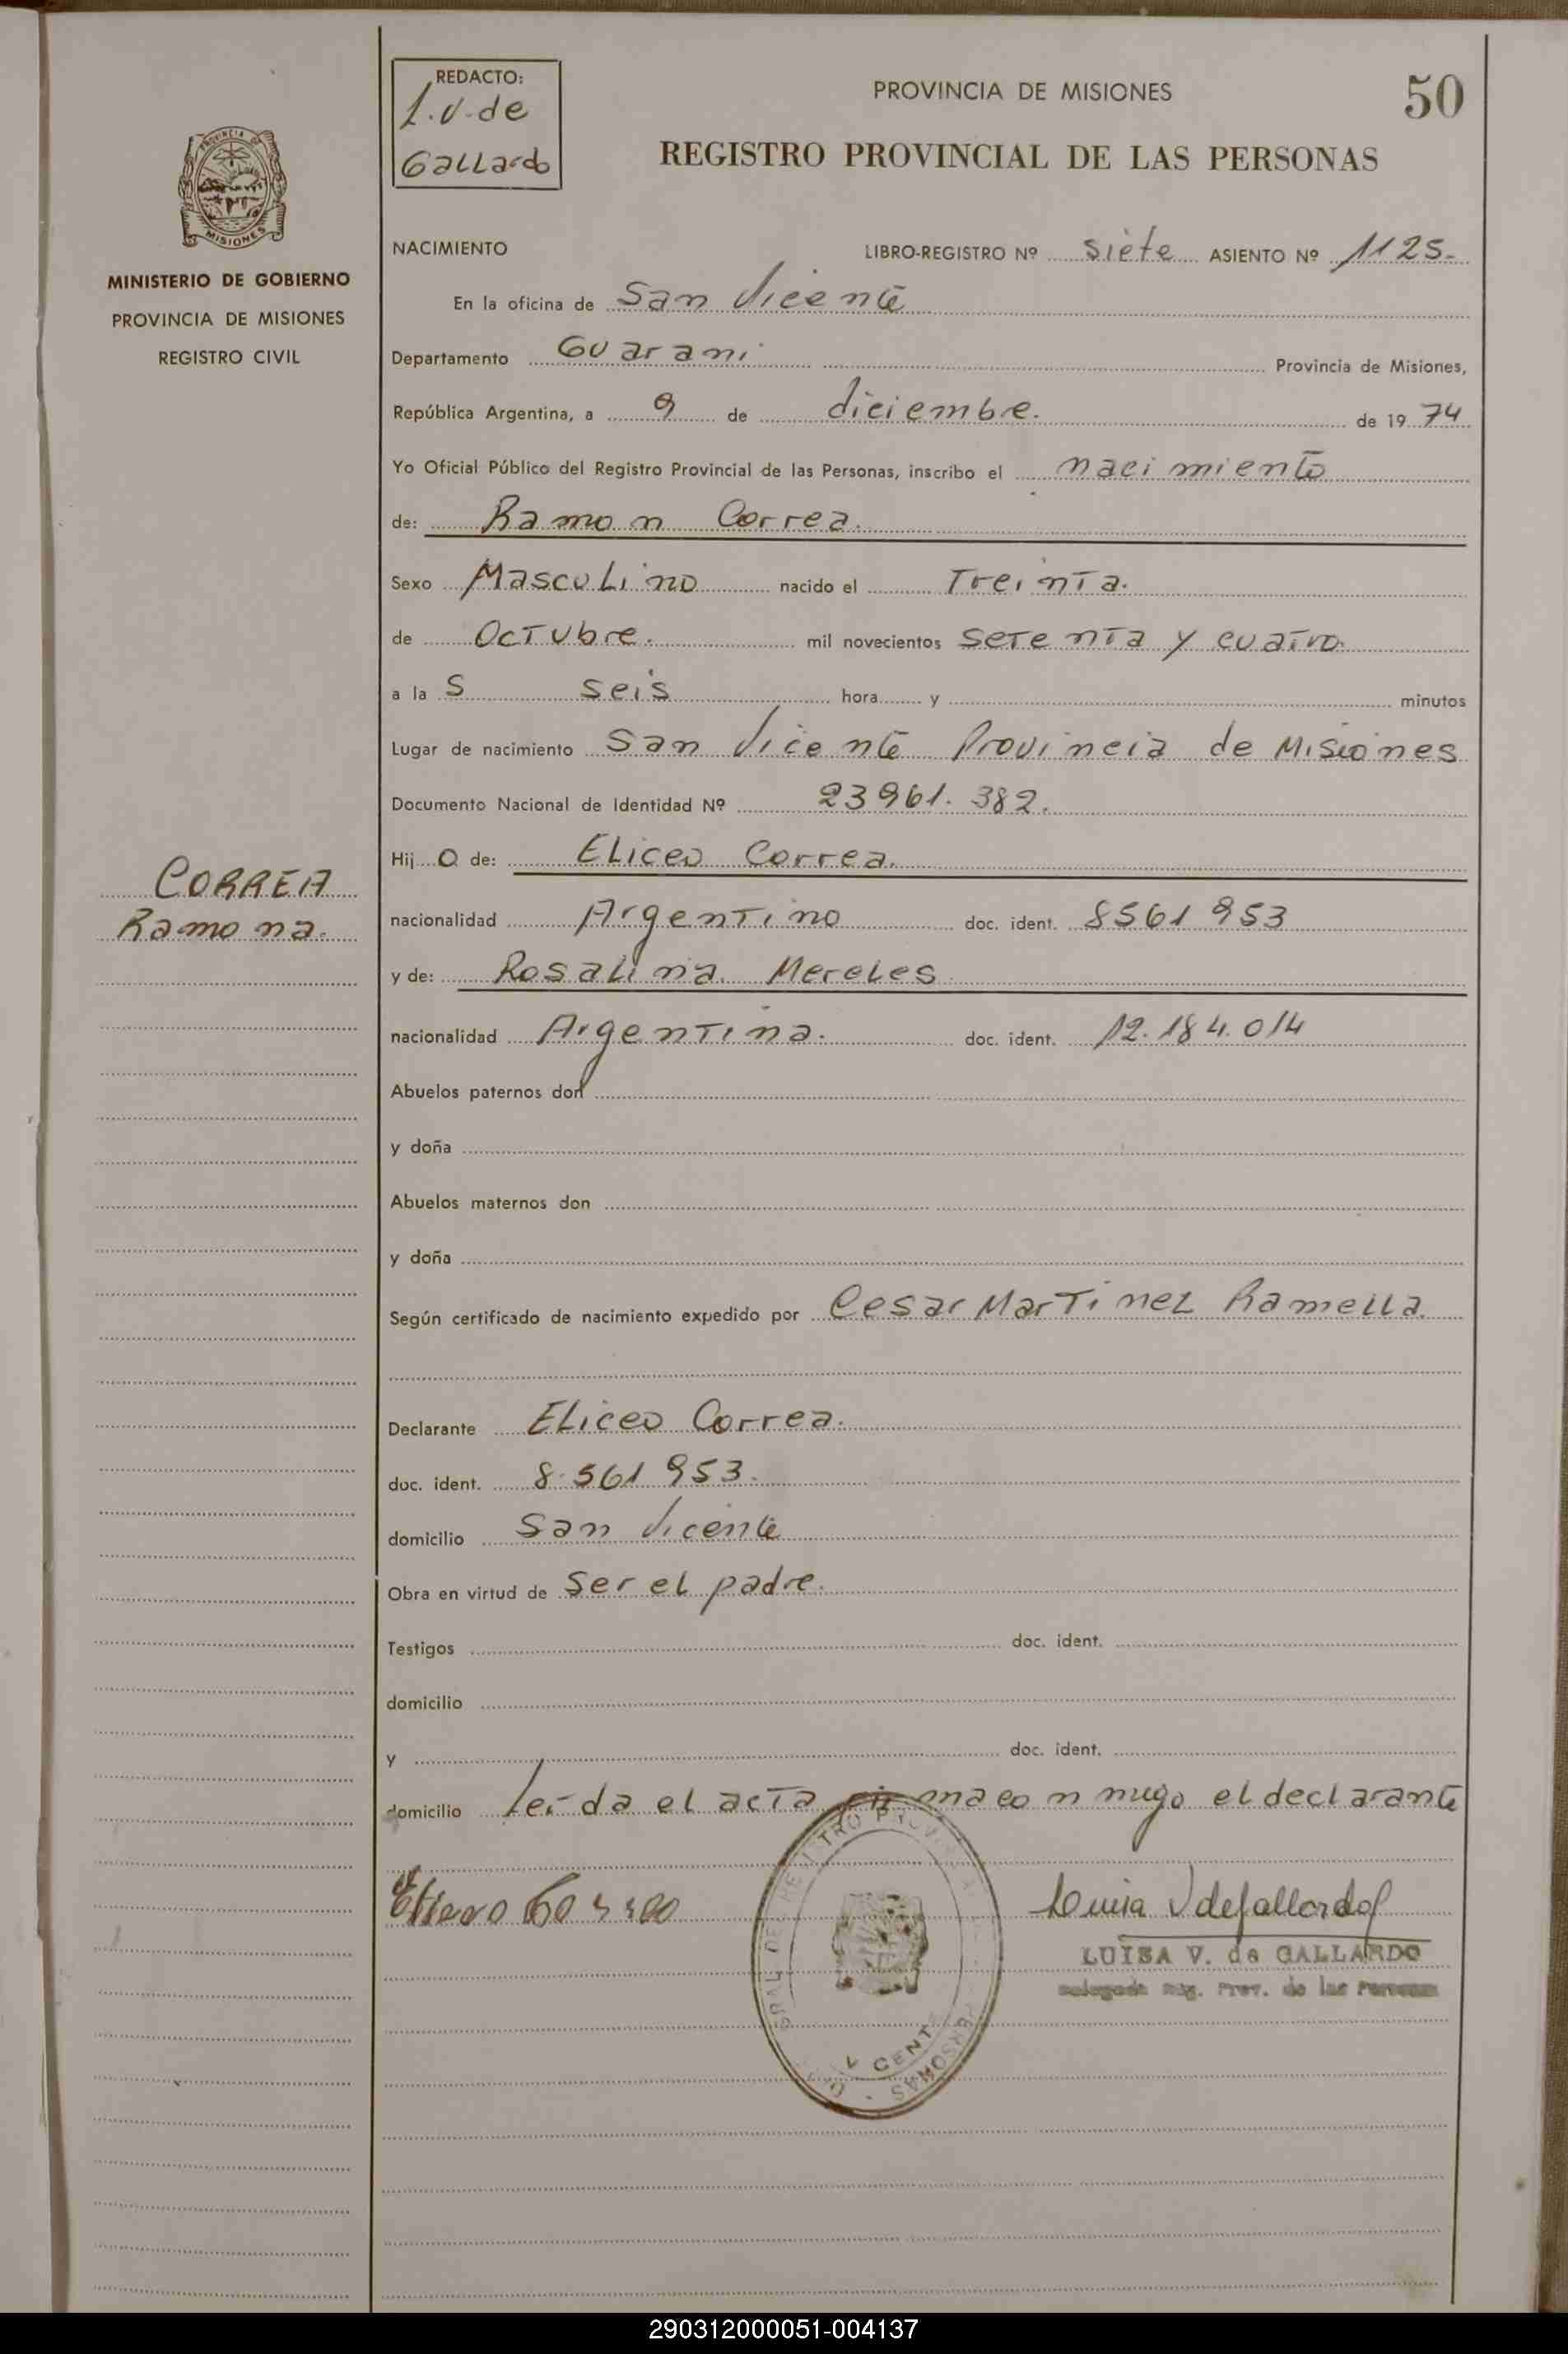 REDACTO:
L.V. de
Gallardo
PROVINCIA DE MISIONES
50
REGISTRO PROVINCIAL DE LAS PERSONAS
PROVINCIA DE
MISIONES
MINISTERIO DE GOBIERNO
PROVINCIA DE MISIONES
REGISTRO CIVIL
NACIMIENTO LIBRO-REGISTRO Nº siete ASIENTO Nº 1125.-
En la oficina de San Vicente
Departamento Guarani Provincia de Misiones,
República Argentina, a 9 de diciembre. de 1974
Yo Oficial Público del Registro Provincial de las Personas, inscribo el nacimiento
de: Ramon Correa.
Sexo Masculino nacido el Treinta.
de Octubre. mil novecientos setenta y cuatro
a las seis hora y minutos
Lugar de nacimiento San Vicente Provincia de Misiones
Documento Nacional de Identidad Nº 23961.382.
Hijo de: Eliceo Correa.
CORREA
Ramona.
nacionalidad Argentino doc. ident. 8561953
y de: Rosalina Mereles
nacionalidad Argentina. doc. ident. 12.184.014
Abuelos paternos don
y doña
Abuelos maternos don
y doña
Según certificado de nacimiento expedido por Cesar Martinez Ramella.
Declarante Eliceo Correa.
doc. ident. 8.561953.
domicilio San Vicente
Obra en virtud de ser el padre.
Testigos doc. ident.
domicilio
y doc. ident.
domicilio Leída el acta firma con migo el declarante
Luisa V de Gallardo
LUISA V. de GALLARDO
Delegada Reg. Prov. de las Personas
290312000051-004137